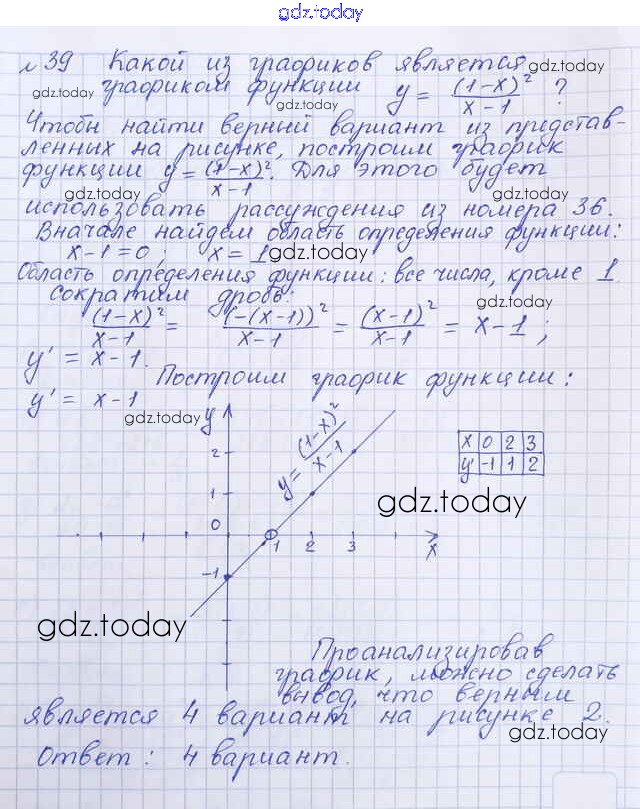 gdz.today
№39 Какой из графиков является gdz.today
gdz.today графиком функции y = (1-x)²/(x-1) ?
gdz.today
Чтобы найти верный вариант из представ-
ленных на рисунке, построим график
функции y = (1-x)²/(x-1). Для этого будет
gdz.today gdz.today
использовать рассуждения из номера 36.
Вначале найдем область определения функции:
x-1=0, x = 1 gdz.today
Область определения функции: все числа, кроме 1.
Сократим дробь: gdz.today
(1-x)²/(x-1) = (-(x-1))²/(x-1) = (x-1)²/(x-1) = x-1;
y' = x-1.
Построим график функции:
y' = x-1
gdz.today
y
y = (1-x)²/(x-1)
x 0 2 3
y' -1 1 2
2
1
gdz.today
0
1 2 3 x
-1
gdz.today
Проанализировав
график, можно сделать
gdz.today
вывод, что верным
является 4 вариант на рисунке 2.
gdz.today
Ответ: 4 вариант.